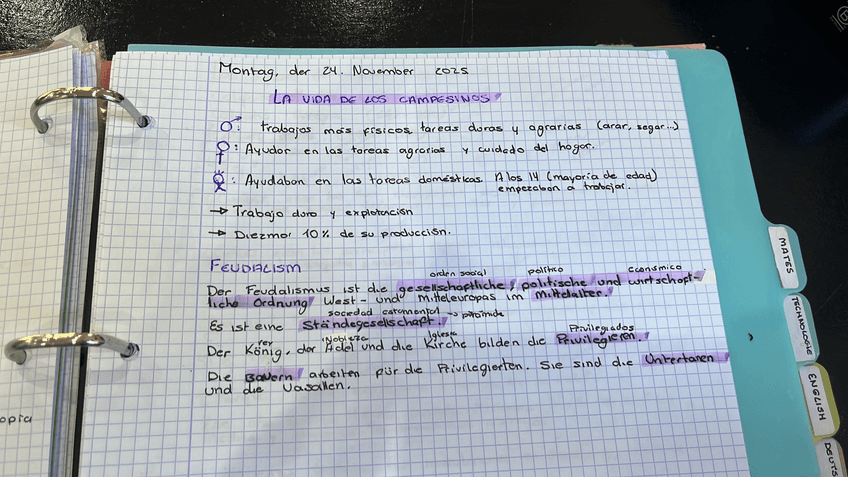 Montag, der 24. November 2025
LA VIDA DE LOS CAMPESINOS
♂: trabajos más físicos, tareas duras y agrarias (arar, segar...)
♀: Ayudar en las tareas agrarias y cuidado del hogar.
: Ayudaban en las tareas domésticas. A los 14 (mayoría de edad)
empezaban a trabajar.
→ Trabajo duro y explotación
→ Diezmo: 10% de su producción.
FEUDALISM
orden social político económico
Der Feudalismus ist die gesellschaftliche, politische und wirtschaft-
liche Ordnung West- und Mitteleuropas im Mittelalter.
sociedad estamental → pirámide
Es ist eine Ständegesellschaft.
rey Nobleza iglesia Privilegiados
Der König, der Adel und die Kirche bilden die Privilegieren.
Die Bauern arbeiten für die Privilegierten. Sie sind die Untertanen
und die Vasallen.
opia
MATES
TECHNOLOGIE
ENGLISH
DEUTS